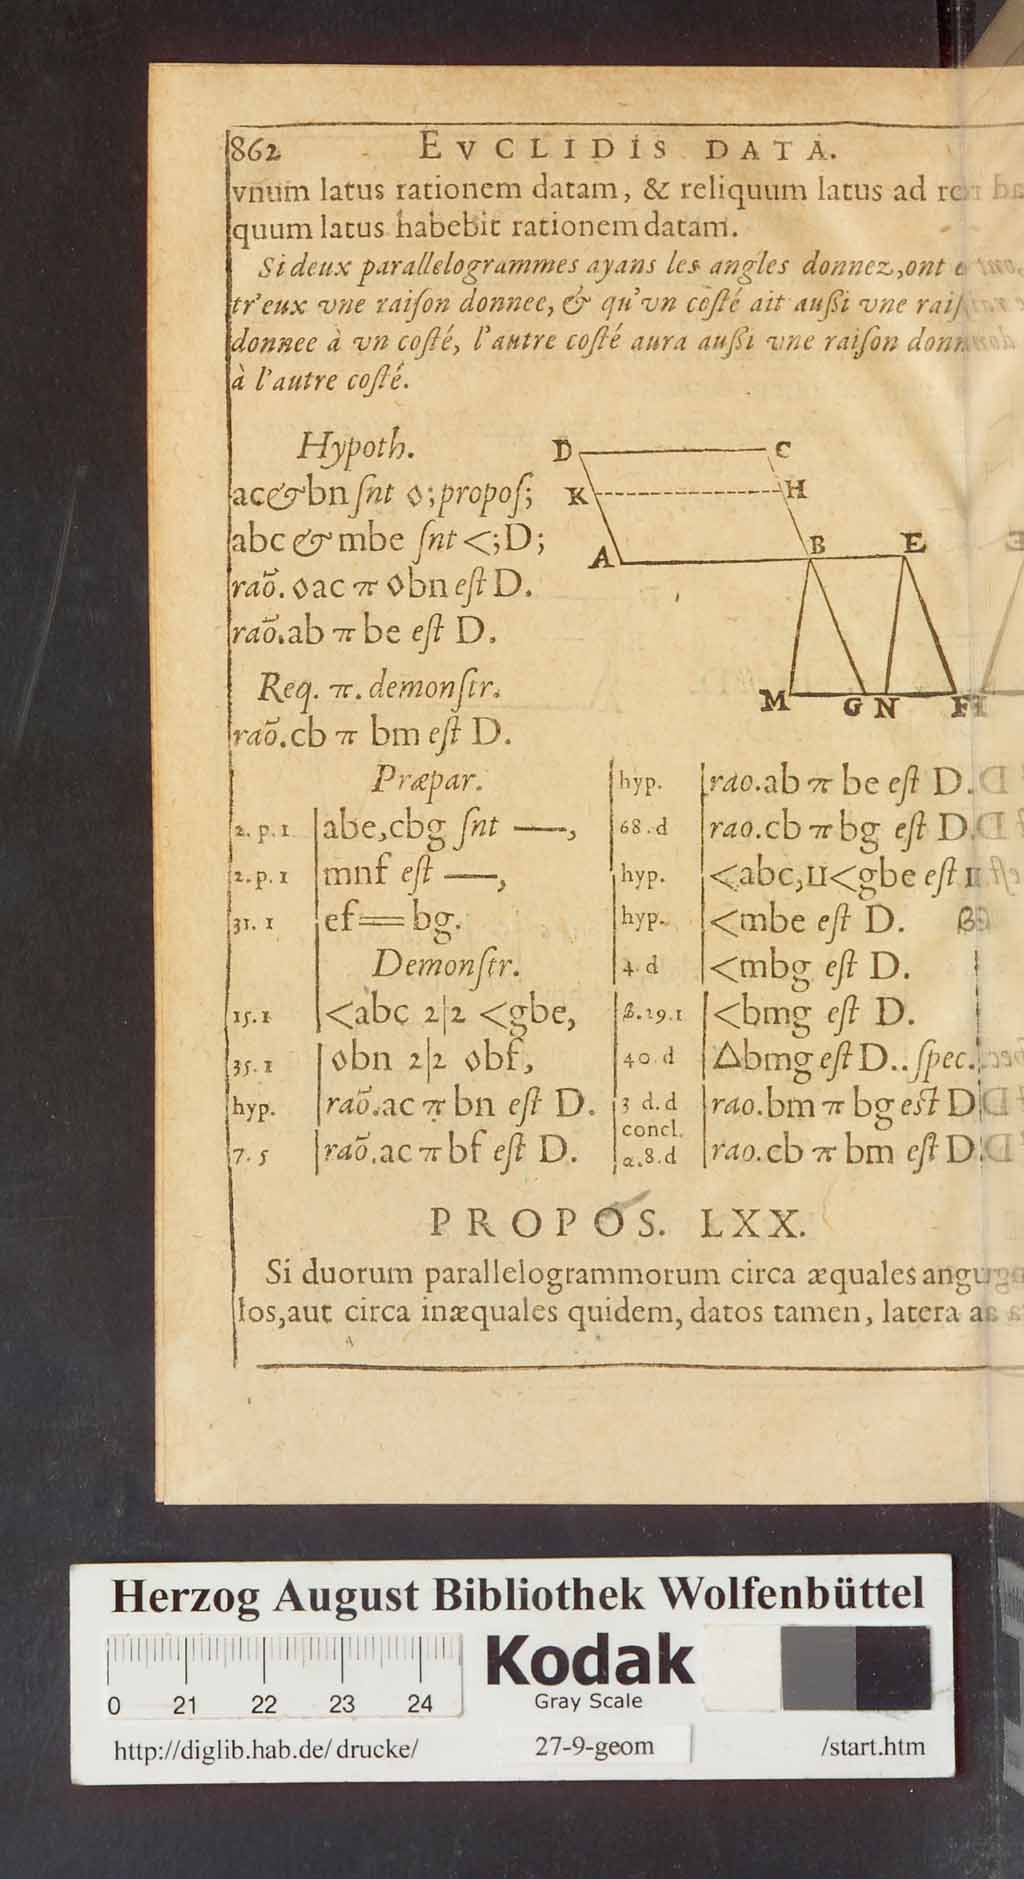 862 EVCLIDIS DATA.
vnum latus rationem datam, & reliquum latus ad
quum latus habebit rationem datam.
Si deux parallelogrammes ayans les angles donnez, ont
tr'eux vne raiſon donnee, & qu'vn coſté ait auſſi vne raiſ
donnee à vn coſté, l'autre coſté aura auſſi vne raiſon donn
à l'autre coſté.
Hypoth.
ac & bn ſnt ◊; propoſ;
abc & mbe ſnt <; D;
raõ. ◊ac π ◊bn eſt D.
raõ. ab π be eſt D.
Req. π. demonſtr.
raõ. cb π bm eſt D.
D C
K H
A B E
M G N F
Præpar.
2. p. 1 abe, cbg ſnt —,
2. p. 1 mnf eſt —,
31. 1 ef = bg.
Demonſtr.
15. 1 <abc 2|2 <gbe,
35. 1 ◊bn 2|2 ◊bf,
hyp. raõ. ac π bn eſt D.
7. 5 raõ. ac π bf eſt D.
hyp. rao. ab π be eſt D.
68. d rao. cb π bg eſt D.
hyp. <abc, II <gbe eſt
hyp. <mbe eſt D. β
4. d <mbg eſt D.
β. 29. 1 <bmg eſt D.
40. d △bmg eſt D.. ſpec.
3 d. d rao. bm π bg eſt D
concl.
α. 8. d rao. cb π bm eſt D.
PROPOS. LXX.
Si duorum parallelogrammorum circa æquales angu
los, aut circa inæquales quidem, datos tamen, latera
Herzog August Bibliothek Wolfenbüttel
0 21 22 23 24
Kodak
Gray Scale
http://diglib.hab.de/drucke/ 27-9-geom /start.htm